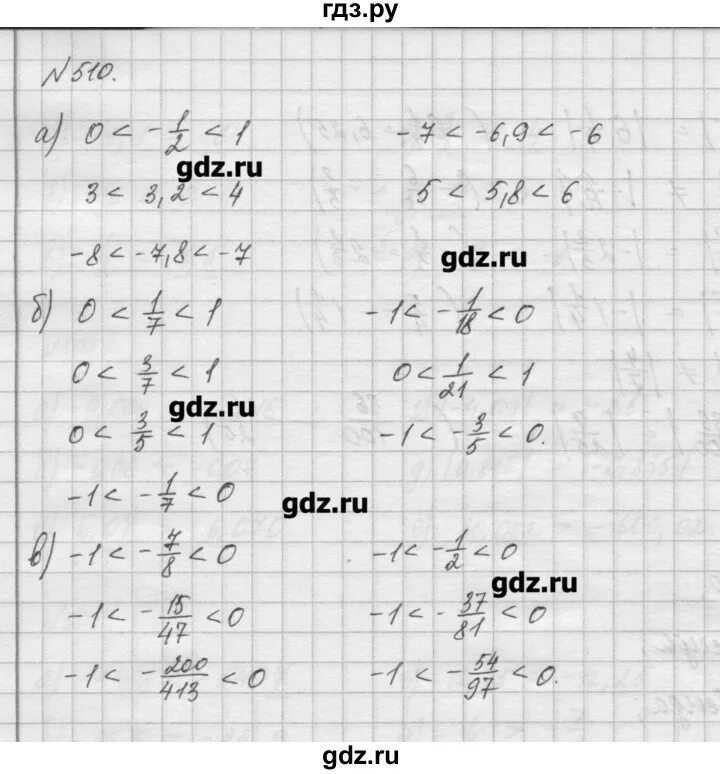 гдз.ру
№510.
а) 0 < -1/2 < 1   -7 < -6,9 < -6
gdz.ru
3 < 3,2 < 4   5 < 5,8 < 6
-8 < -7,8 < -7
gdz.ru
б) 0 < 1/7 < 1   -1 < -1/18 < 0
0 < 3/7 < 1   0 < 1/21 < 1
gdz.ru
0 < 3/5 < 1   -1 < -3/5 < 0.
-1 < -1/7 < 0
gdz.ru
в) -1 < -7/8 < 0   -1 < -1/2 < 0
gdz.ru
-1 < -15/47 < 0   -1 < -37/81 < 0
-1 < -200/413 < 0   -1 < -54/97 < 0.
gdz.ru